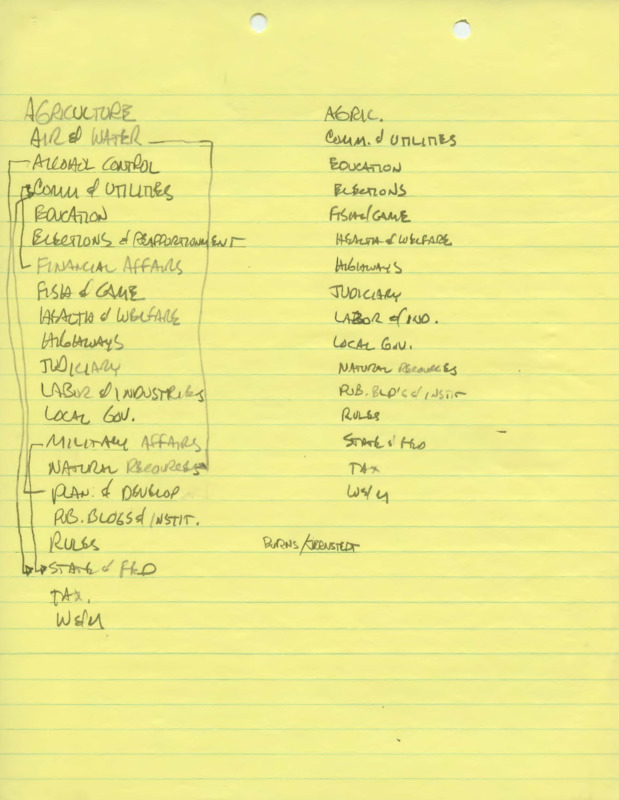 AGRICULTURE
AIR & WATER
ALCOHOL CONTROL
COMM & UTILITIES
EDUCATION
ELECTIONS & REAPPORTIONMENT
FINANCIAL AFFAIRS
FISH & GAME
HEALTH & WELFARE
HIGHWAYS
JUDICIARY
LABOR & INDUSTRIES
LOCAL GOV.
MILITARY AFFAIRS
NATURAL RECOURCES
PLAN. & DEVELOP
PUB. BLDGS & INSTIT.
RULES
STATE & FED
TAX.
W&M
AGRIC.
COMM. & UTILITIES
EDUCATION
ELECTIONS
FISH/GAME
HEALTH & WELFARE
HIGHWAYS
JUDICIARY
LABOR & IND.
LOCAL GOV.
NATURAL RECOURCES
PUB. BLD'G & INSTIT
RULES
STATE & FED
TAX
W&M
BURNS/